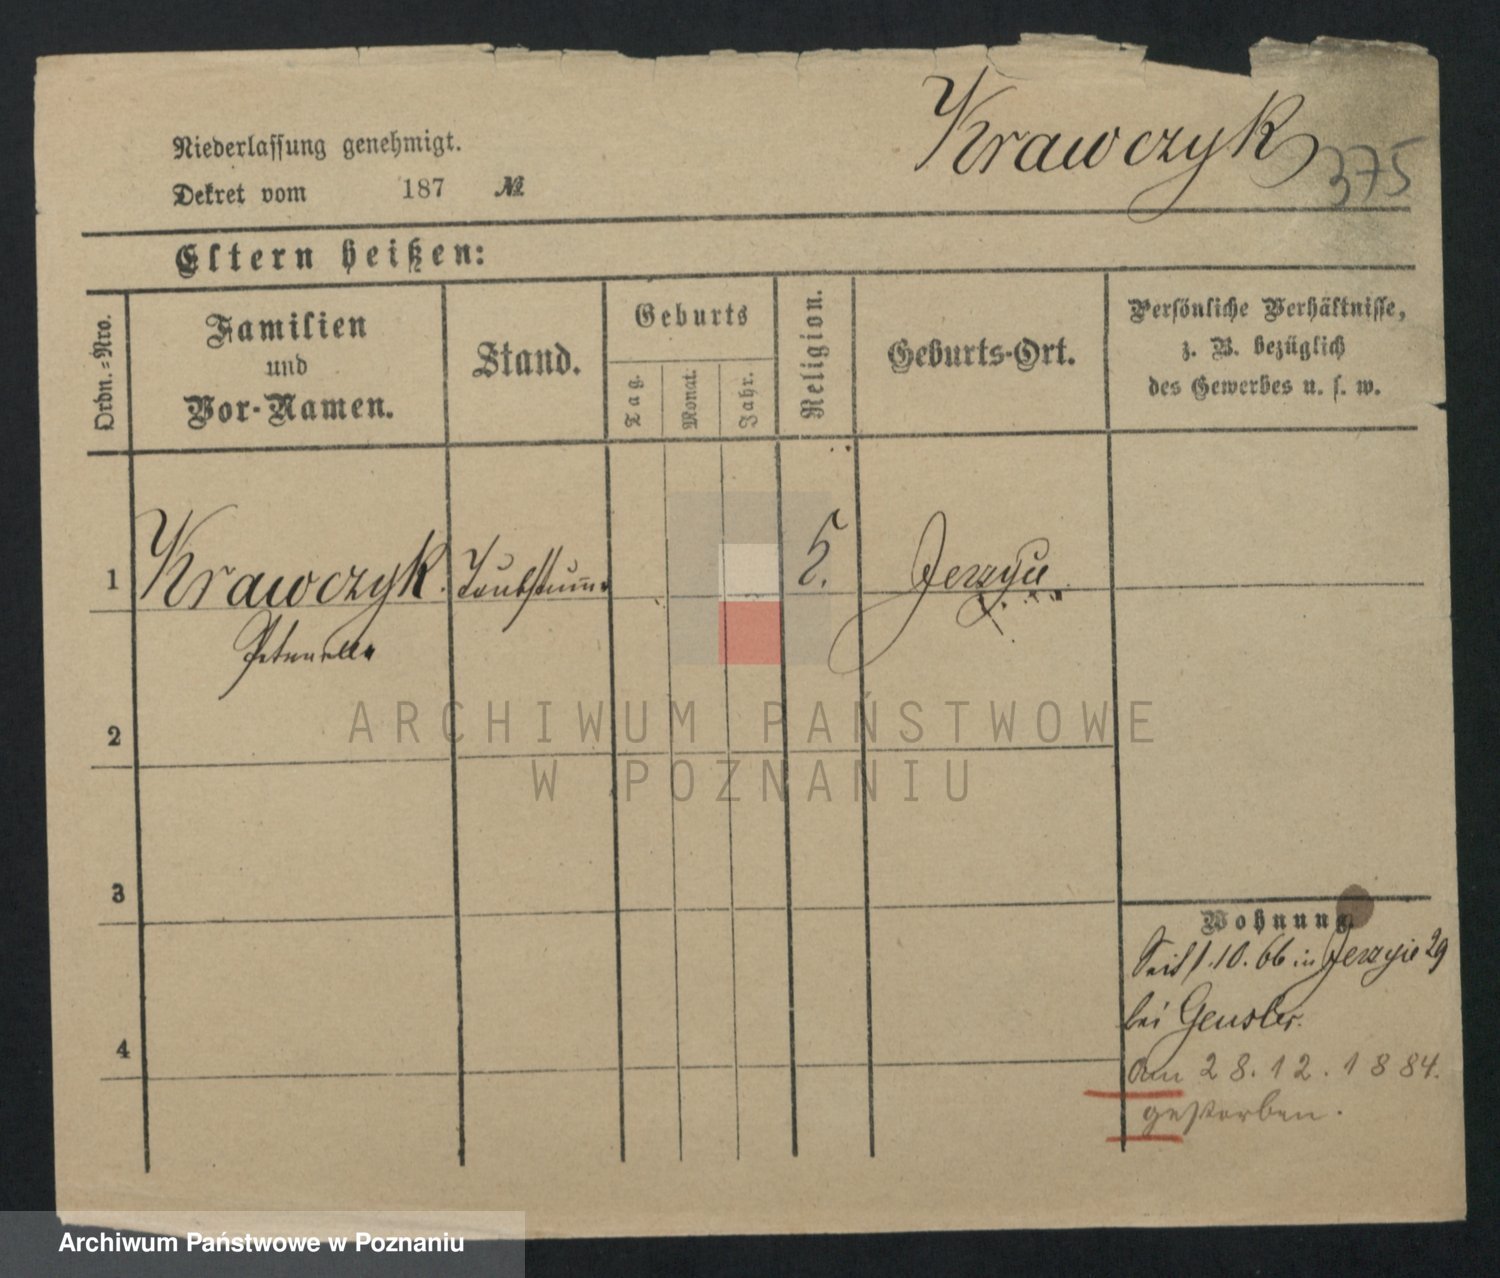 Krawczyk 375
Niederlassung genehmigt.
Dekret vom 187 №
Eltern heißen:
Ordn.-Nro.
Familien
und
Vor-Namen.
Stand.
Geburts
Tag.
Monat.
Jahr.
Religion.
Geburts-Ort.
Persönliche Verhältnisse,
z. B. bezüglich
des Gewerbes u. s. w.
1 Krawczyk. Taubstumm. Jerzyce
Petronella
2
3
4
Wohnung
Seit 1.10.66 in Jerzyce 29
bei Gensler.
am 28.12.1884.
gestorben.
ARCHIWUM PAŃSTWOWE
W POZNANIU
Archiwum Państwowe w Poznaniu